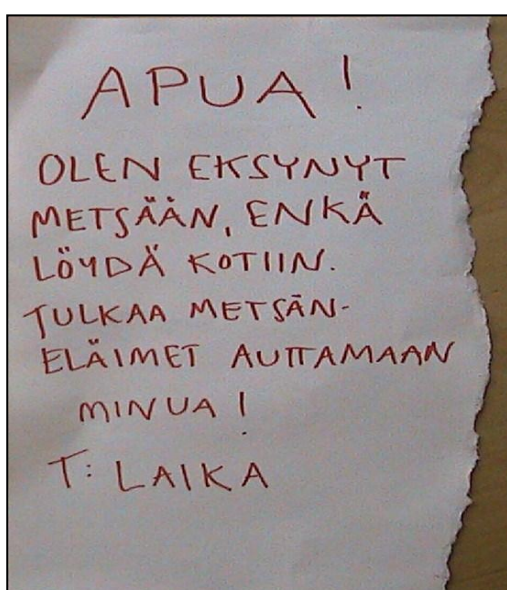 APUA!
OLEN EKSYNYT
METSÄÄN, ENKÄ
LÖYDÄ KOTIIN.
TULKAA METSÄN-
ELÄIMET AUTTAMAAN
MINUA!
T: LAIKA